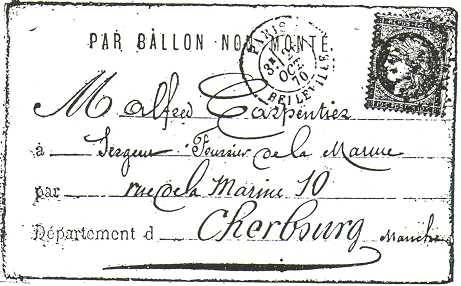 PAR BALLON NON MONTÉ.
PARIS
3E 2
OCT
70
BELLEVILLE
M. Alfred Carpentier
à Sergent Fourrier de la Marine
par rue de la Marine 10
Département d Cherbourg Manche